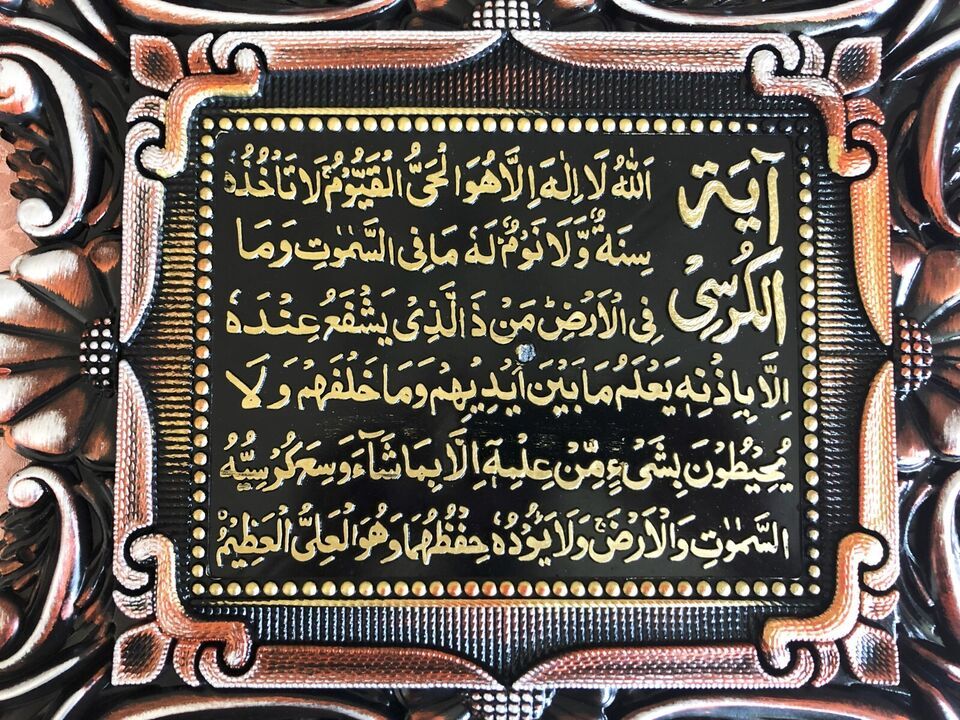 آية الكرسي
اَللهُ لَا اِلٰهَ اِلَّا هُوَ الْحَىُّ الْقَيُّوْمُ ۚ لَا تَاْخُذُهٗ
سِنَةٌ وَّلَا نَوْمٌ ؕ لَهٗ مَا فِى السَّمٰوٰتِ وَمَا
فِى الْاَرْضِ ؕ مَنْ ذَا الَّذِىْ يَشْفَعُ عِنْدَهٗ
اِلَّا بِاِذْنِهٖ يَعْلَمُ مَا بَيْنَ اَيْدِيْهِمْ وَمَا خَلْفَهُمْ وَلَا
يُحِيْطُوْنَ بِشَىْءٍ مِّنْ عِلْمِهٖ اِلَّا بِمَا شَآءَ وَسِعَ كُرْسِيُّهُ
السَّمٰوٰتِ وَالْاَرْضَ ۚ وَلَا يَئُوْدُهٗ حِفْظُهُمَا وَهُوَ الْعَلِىُّ الْعَظِيْمُ